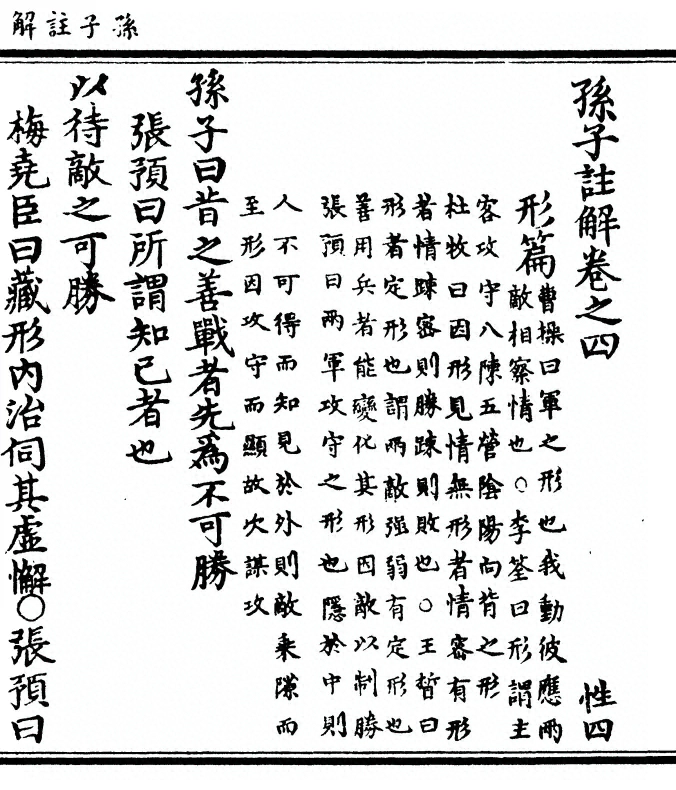 孫子註解
孫子註解卷之四 性四
形篇
曹操曰軍之形也我動彼應兩
敵相察情也○李筌曰形謂主
客攻守八陳五營陰陽向背之形
杜牧曰因形見情無形者情密有形
者情踈密則勝踈則敗也○王晳曰
形者定形也謂兩敵强弱有定形也
善用兵者能變化其形因敵以制勝
張預曰兩軍攻守之形也隱於中則
人不可得而知見於外則敵乘隙而
至形因攻守而顯故次謀攻
孫子曰昔之善戰者先爲不可勝
張預曰所謂知己者也
以待敵之可勝
梅堯臣曰藏形內治伺其虛懈○張預曰